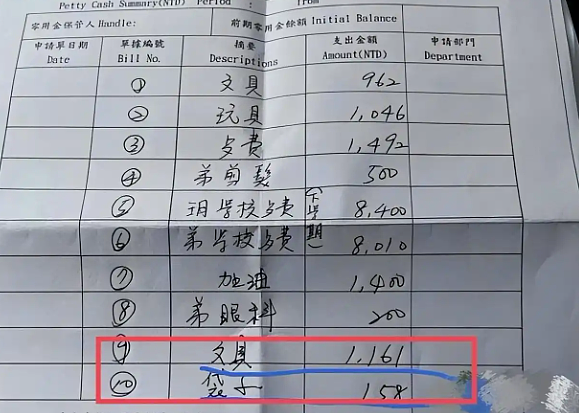 Petty Cash Summary(NTD) Period : from
零用金保管人 Handle: 前期零用金餘額 Initial Balance
申請單日期 單據編號 摘要 支出金額 申請部門
Date Bill No. Descriptions Amount(NTD) Department
① 文具 962
② 玩具 1,046
③ 1,492
④ 弟剪髮 500
⑤ 學校 費(下學期) 8,400
⑥ 弟學校 費 8,010
⑦ 加油 1,400
⑧ 弟眼科 200
⑨ 文具 1,161
⑩ 袋子 158